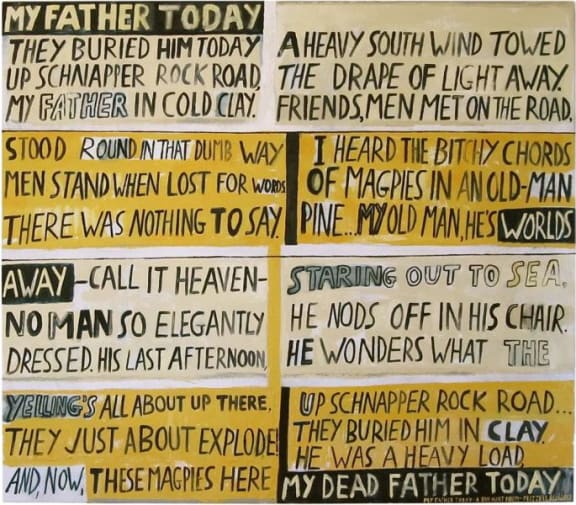 MY FATHER TODAY
THEY BURIED HIM TODAY
UP SCHNAPPER ROCK ROAD,
MY FATHER IN COLD CLAY.
A HEAVY SOUTH WIND TOWED
THE DRAPE OF LIGHT AWAY.
FRIENDS, MEN MET ON THE ROAD,
STOOD ROUND IN THAT DUMB WAY
MEN STAND WHEN LOST FOR WORDS
THERE WAS NOTHING TO SAY.
I HEARD THE BITCHY CHORDS
OF MAGPIES IN AN OLD-MAN
PINE... MY OLD MAN, HE'S WORLDS
AWAY - CALL IT HEAVEN -
NO MAN SO ELEGANTLY
DRESSED. HIS LAST AFTERNOON,
STARING OUT TO SEA,
HE NODS OFF IN HIS CHAIR.
HE WONDERS WHAT THE
YELLING'S ALL ABOUT UP THERE.
THEY JUST ABOUT EXPLODE!
AND, NOW, THESE MAGPIES HERE
UP SCHNAPPER ROCK ROAD...
THEY BURIED HIM IN CLAY.
HE WAS A HEAVY LOAD,
MY DEAD FATHER TODAY
MY FATHER TODAY - A SAM HUNT POEM -